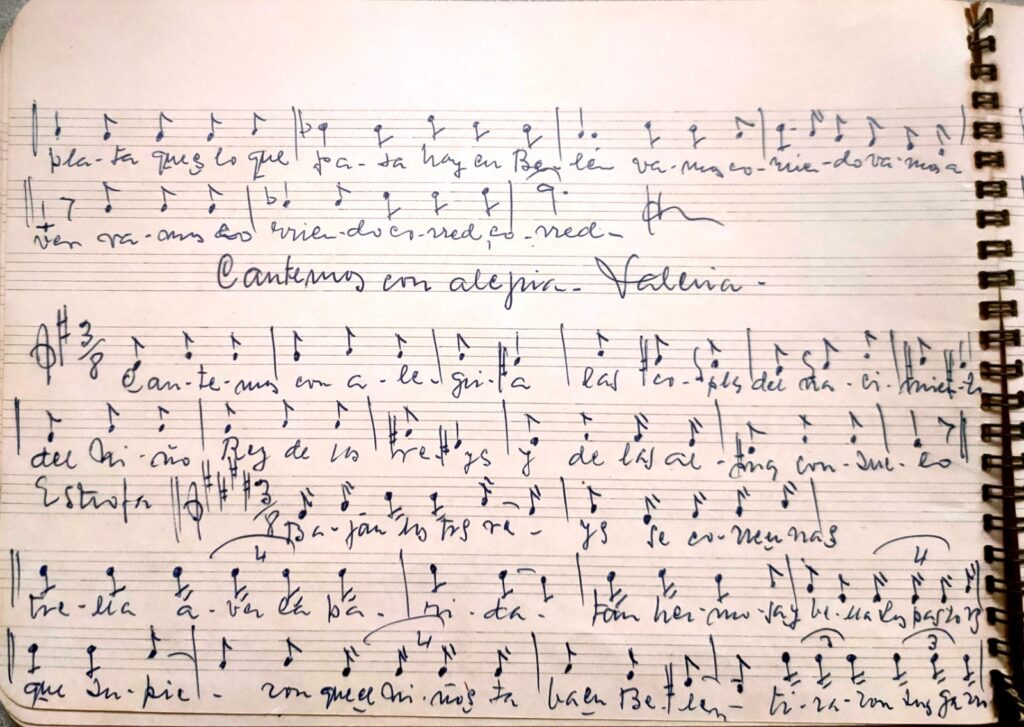 pla-ta que es lo que pa-sa hay en Be-lén va-mos co-rrien-do va-mos a
ver va-mos co rrien-do co-rred, co-rred-
Cantemos con alegria - Valeria -
3/8 Can-te-mos con a-le-gri-a las co-plas del na-ci-mien-to
del Ni-ño Rey de los Re-yes y de las al-mas con-sue-lo
Estrofa 3/8 Ba-jan los tres re-yes se co-
tre-lla a-ver la pa-ri-da- tan her-mo-sa y be-lla los pastores
4 4
que su-pie-ron que el Ni-ño es ta ba en Be-len- ti-ra-ron sus
4 3 3